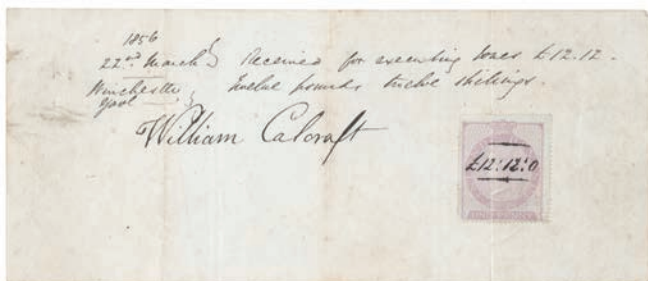 1856
22nd March } Received for executing Jones £12.12.
Winchester } Twelve pounds twelve shillings.
Gaol
William Calcraft
£12:12:0